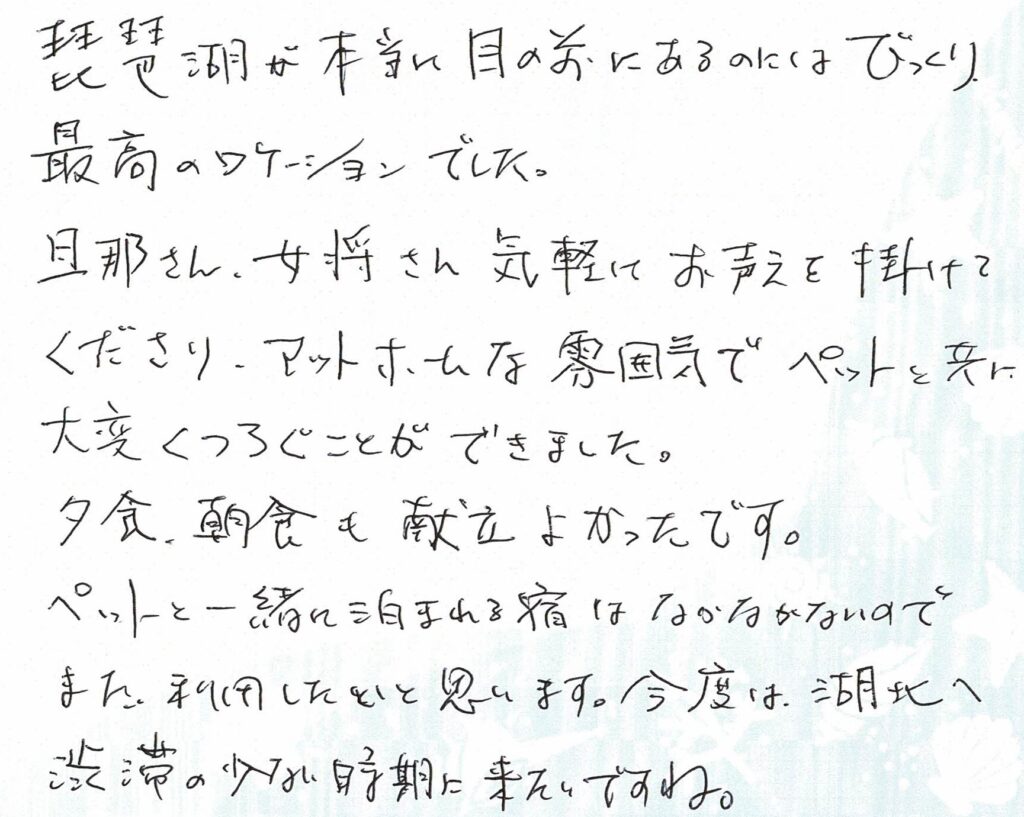 琵琶湖が本当に目の前にあるのにはびっくり
最高のロケーションでした。
旦那さん、女将さん気軽にお声を掛けて
くださり、アットホームな雰囲気でペットと共に
大変くつろぐことができました。
夕食、朝食も献立よかったです。
ペットと一緒に泊まれる宿はなかなかないので
また、利用したいと思います。今度は、湖北へ
渋滞の少ない時期に来たいですね。